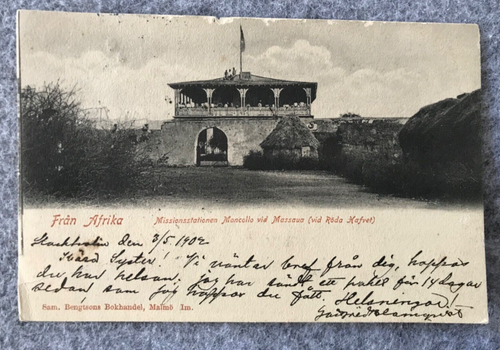 Från Afrika
Missionsstationen Moncollo vid Massaua (vid Röda Hafvet)
Stockholm den 3/5 1902
Kära Syster! Vi väntar bref från dig, hoppas
du har helsan. Jag har sändt ett paket för 14 dagar
sedan som jag hoppas du fått. Helsningar!
Sam. Bengtsons Bokhandel, Malmö Im.